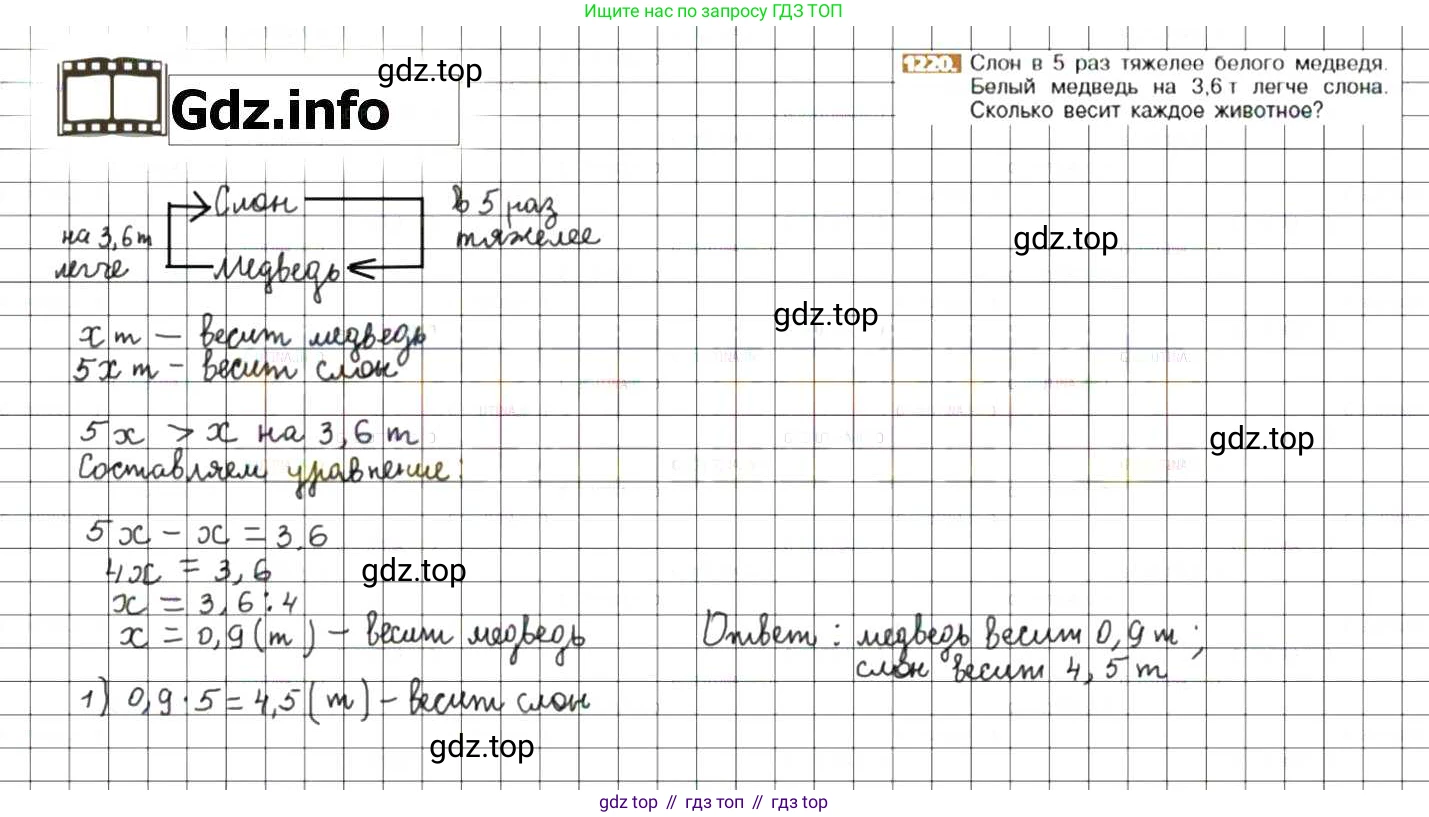 Ищите нас по запросу ГДЗ ТОП
gdz.top
Gdz.info
1220. Слон в 5 раз тяжелее белого медведя.
Белый медведь на 3,6 т легче слона.
Сколько весит каждое животное?
Слон
в 5 раз
тяжелее
на 3,6 т
легче
медведь
gdz.top
gdz.top
x т — весит медведь
5x т - весит слон
5x > x на 3,6 т
Составляем уравнение:
gdz.top
5x - x = 3,6
4x = 3,6
gdz.top
x = 3,6 : 4
x = 0,9 (т) - весит медведь
Ответ: медведь весит 0,9 т;
слон весит 4,5 т
1) 0,9 · 5 = 4,5 (т) - весит слон
gdz.top
gdz top // гдз топ // gdz top